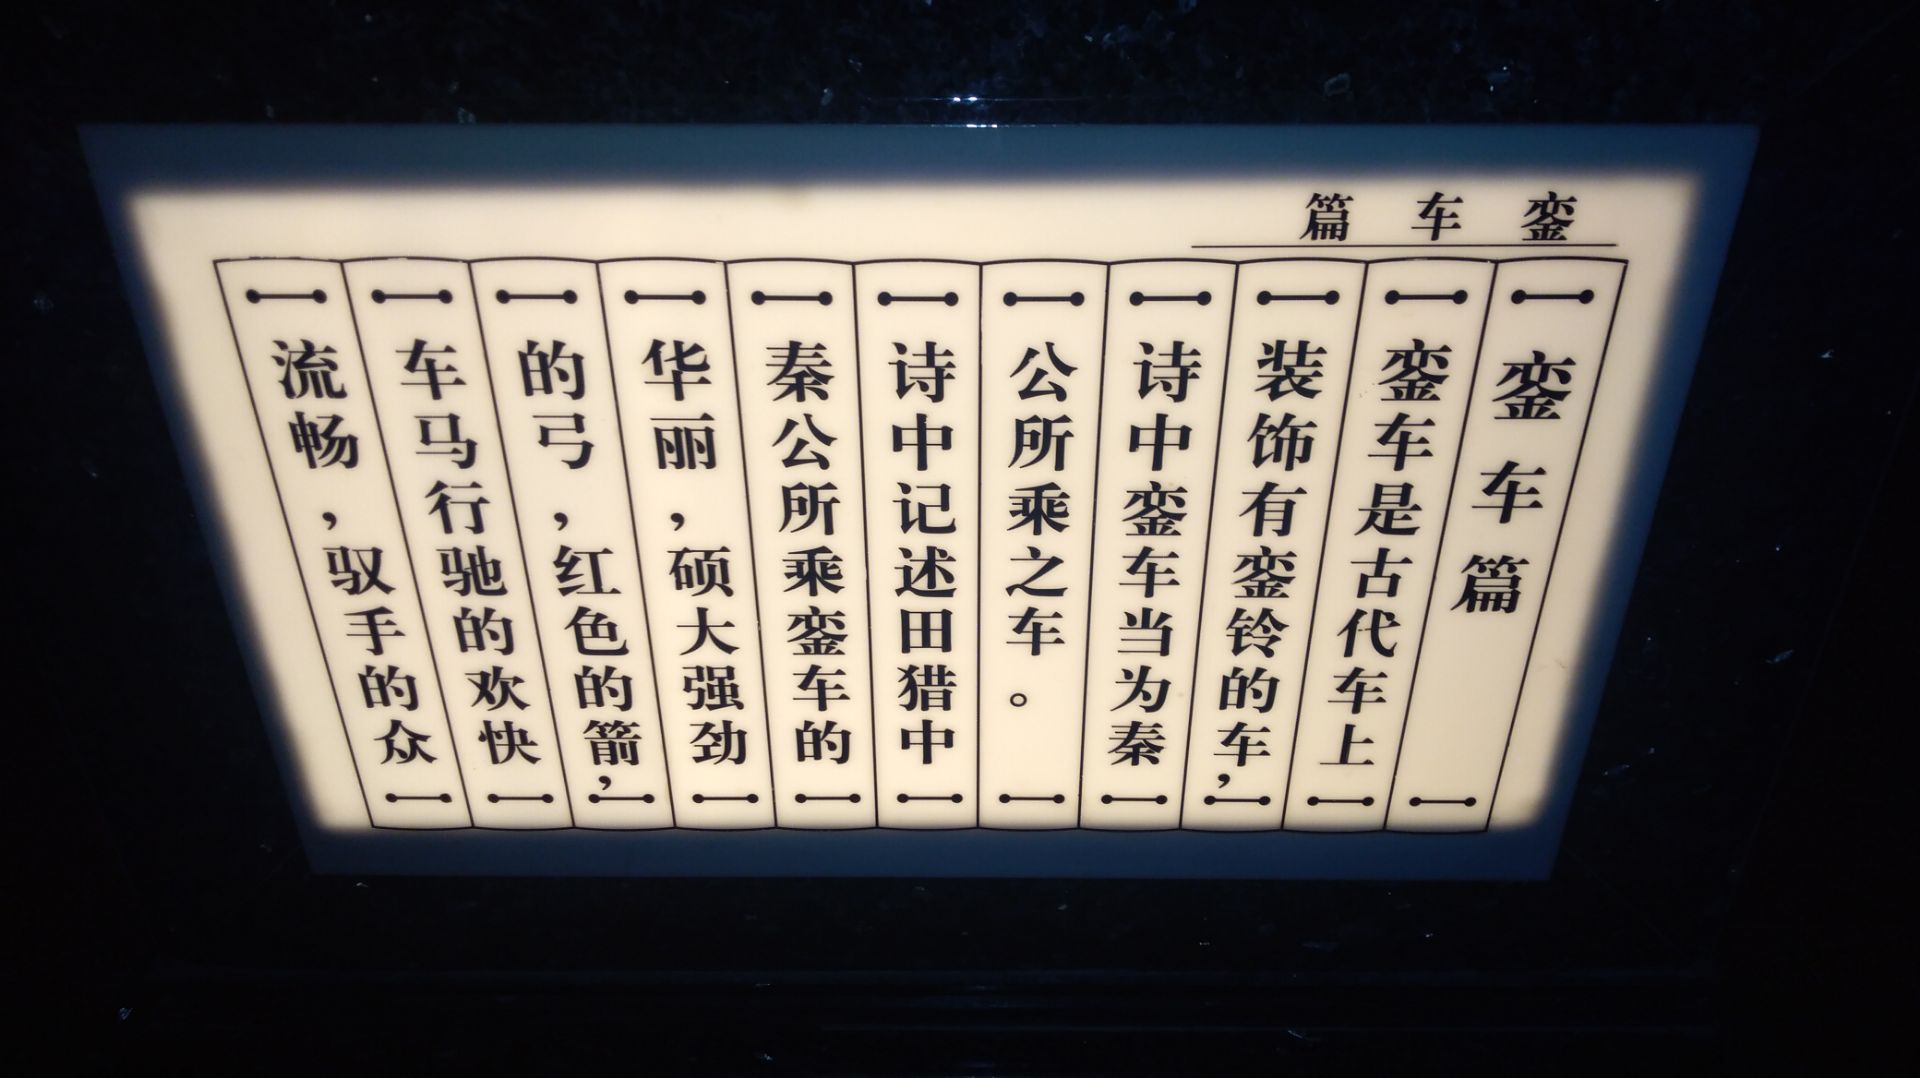 銮车篇
銮车篇
銮车是古代车上
装饰有銮铃的车，
诗中銮车当为秦
公所乘之车。
诗中记述田猎中
秦公所乘銮车的
华丽，硕大强劲
的弓，红色的箭，
车马行驰的欢快
流畅，驭手的众